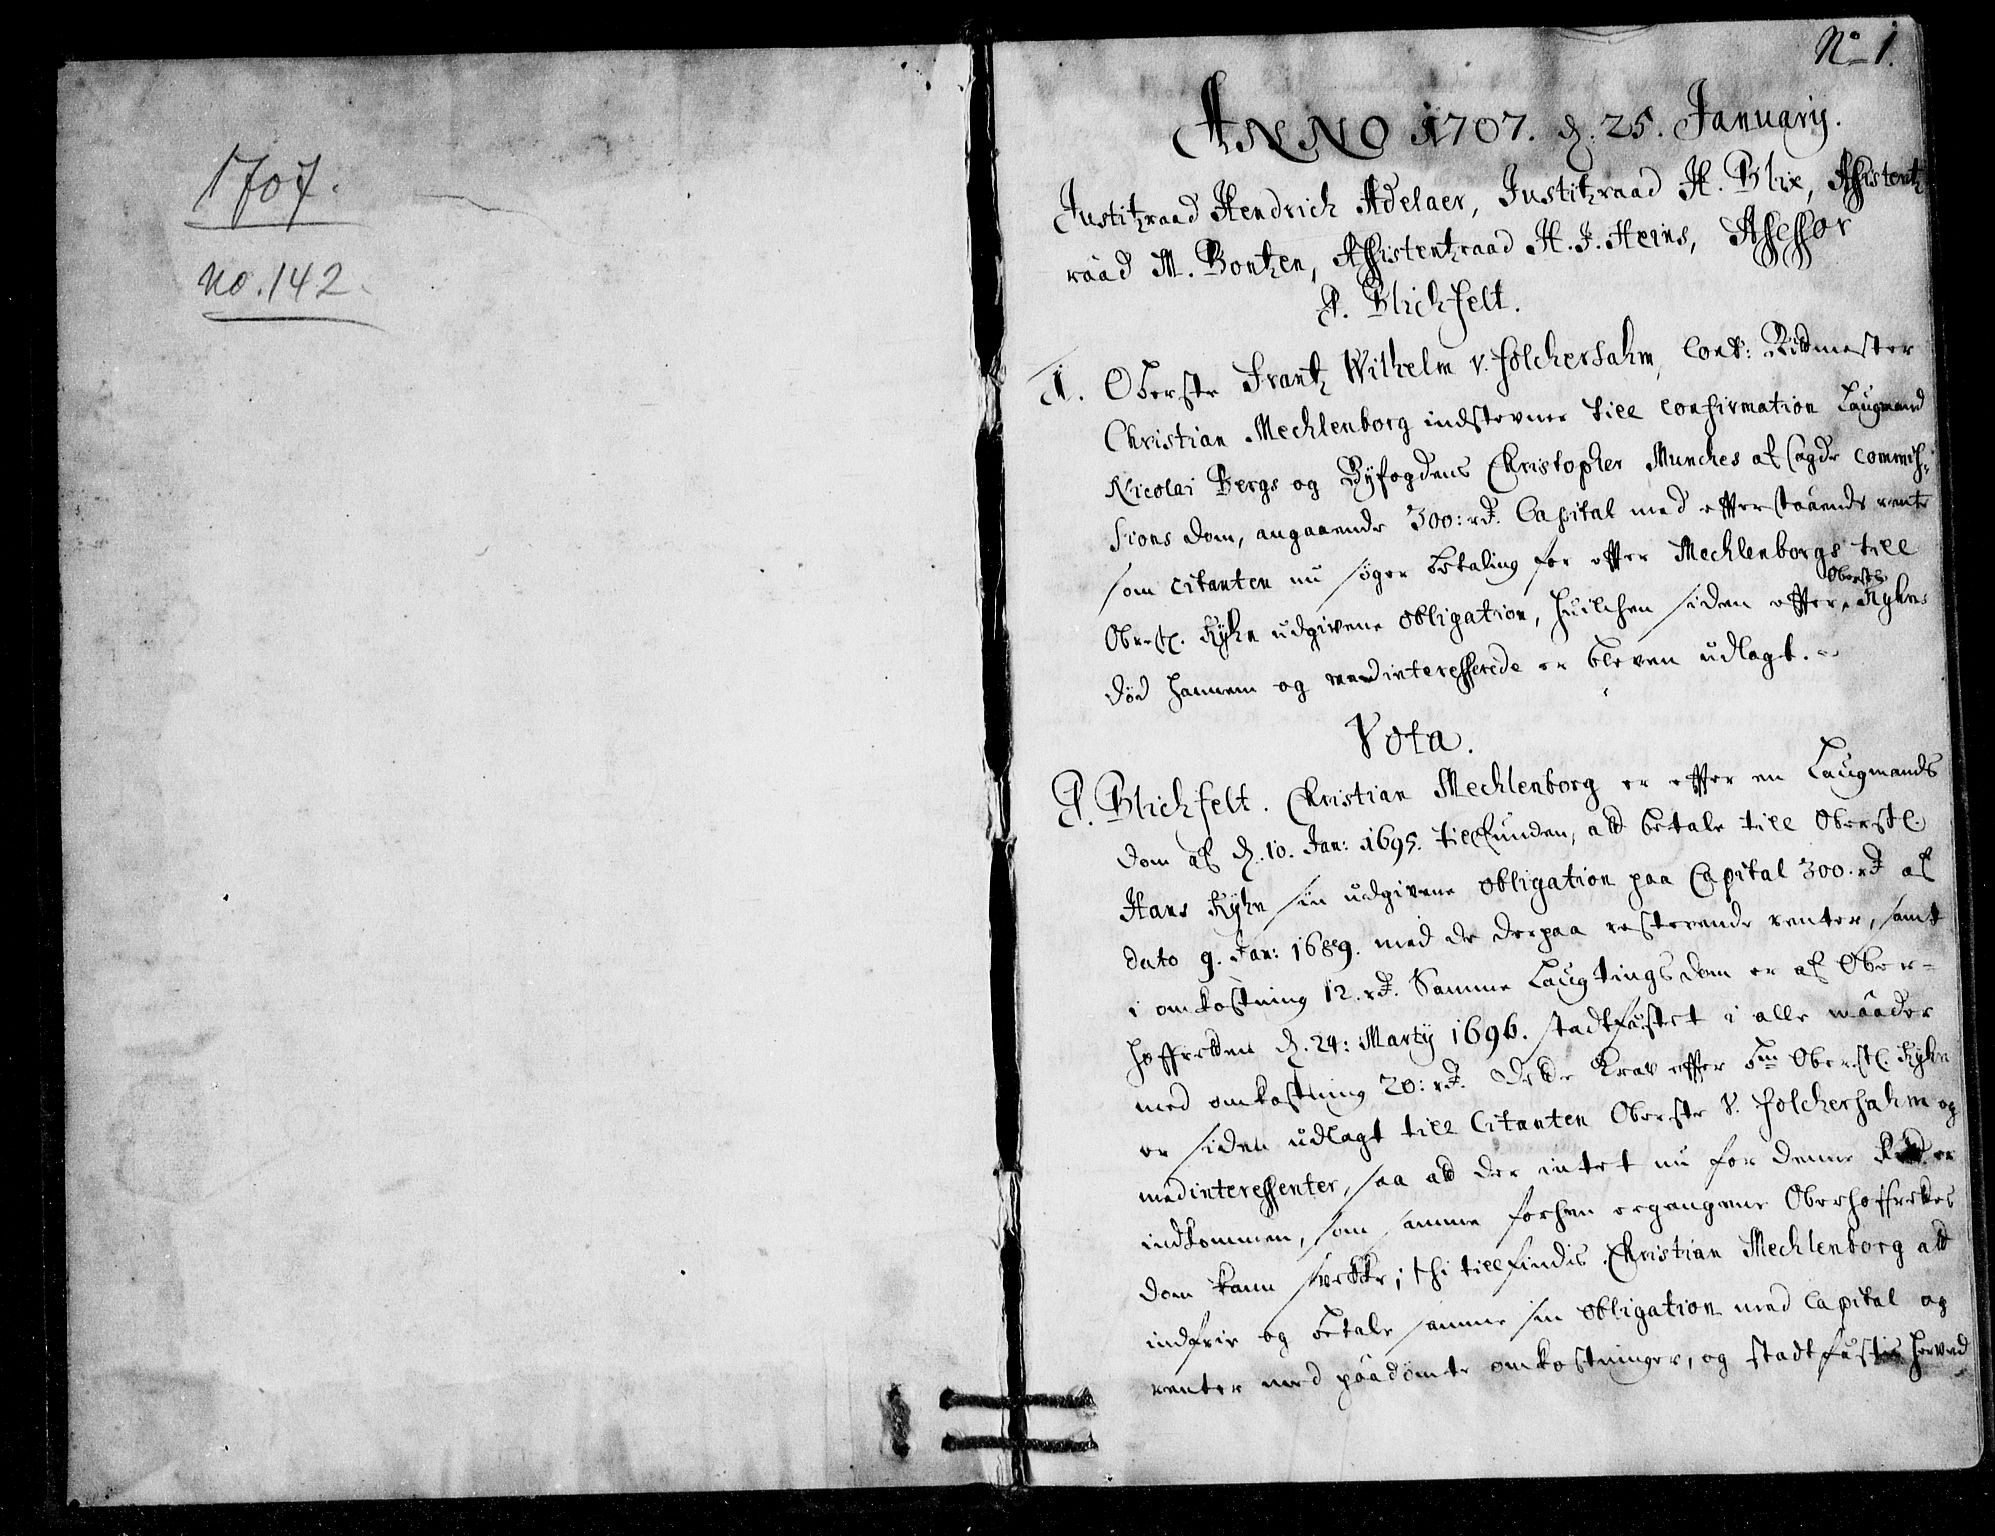 1707.
no. 142.
No 1.
ANNO 1707. d. 25. Januarij.
Justitzraad Hendrich Adelaer, Justitzraad H. Blix, Assistentz
raad M. Bontzen, Assistentzraad H. J. Heins, Assessor
P. Blichfelt.
1. Oberste Frantz Wilhelm v. Folchersahm, Cont: Ritmester
Christian Mechlenborg indstevner till confirmation Laugmand
Nicolai Bergs og Byfogdens Christopher Munches afsagde commis-
sions dom, angaaende 300: rd. Capital med efterstaaende rente
som citanten nu søger betaling for efter Mechlenborgs till
Oberstl. Kyhn udgivene obligation, huilchen siden efter Oberstl. Kyhns
død hannem og medinteresserede er bleven udlagt.
Vota.
P. Blichfelt. Christian Mechlenborg er efter en Laugmands
dom af d. 10. Jan: 1695. tillfunden, att betale till Oberstl.
Hans Kyhn sin udgivene obligation paa Capital 300. rd af
dato 9. Jan: 1689. med de derpaa resterende renter, samt
i omkostning 12. rd. Samme Laugtings dom er af Ober-
hoffretten d. 24: Martij 1696. stadfæstet i alle maader
med omkostning 20: rd. Dette Krav efter Oberstl. Kyhn
er siden udlagt till Citanten Oberste V. Folchersahm og
medinteressenter, saa att der intet nu for denne Rett er
indkommen, som samme forhen ergangene Oberhoffrettes
dom kann svekke; thi tillfindis Christian Mechlenborg att
indfrie og betale samme sin obligation med Capital og
renter med paadømte omkostninger, og stadfæstis herved